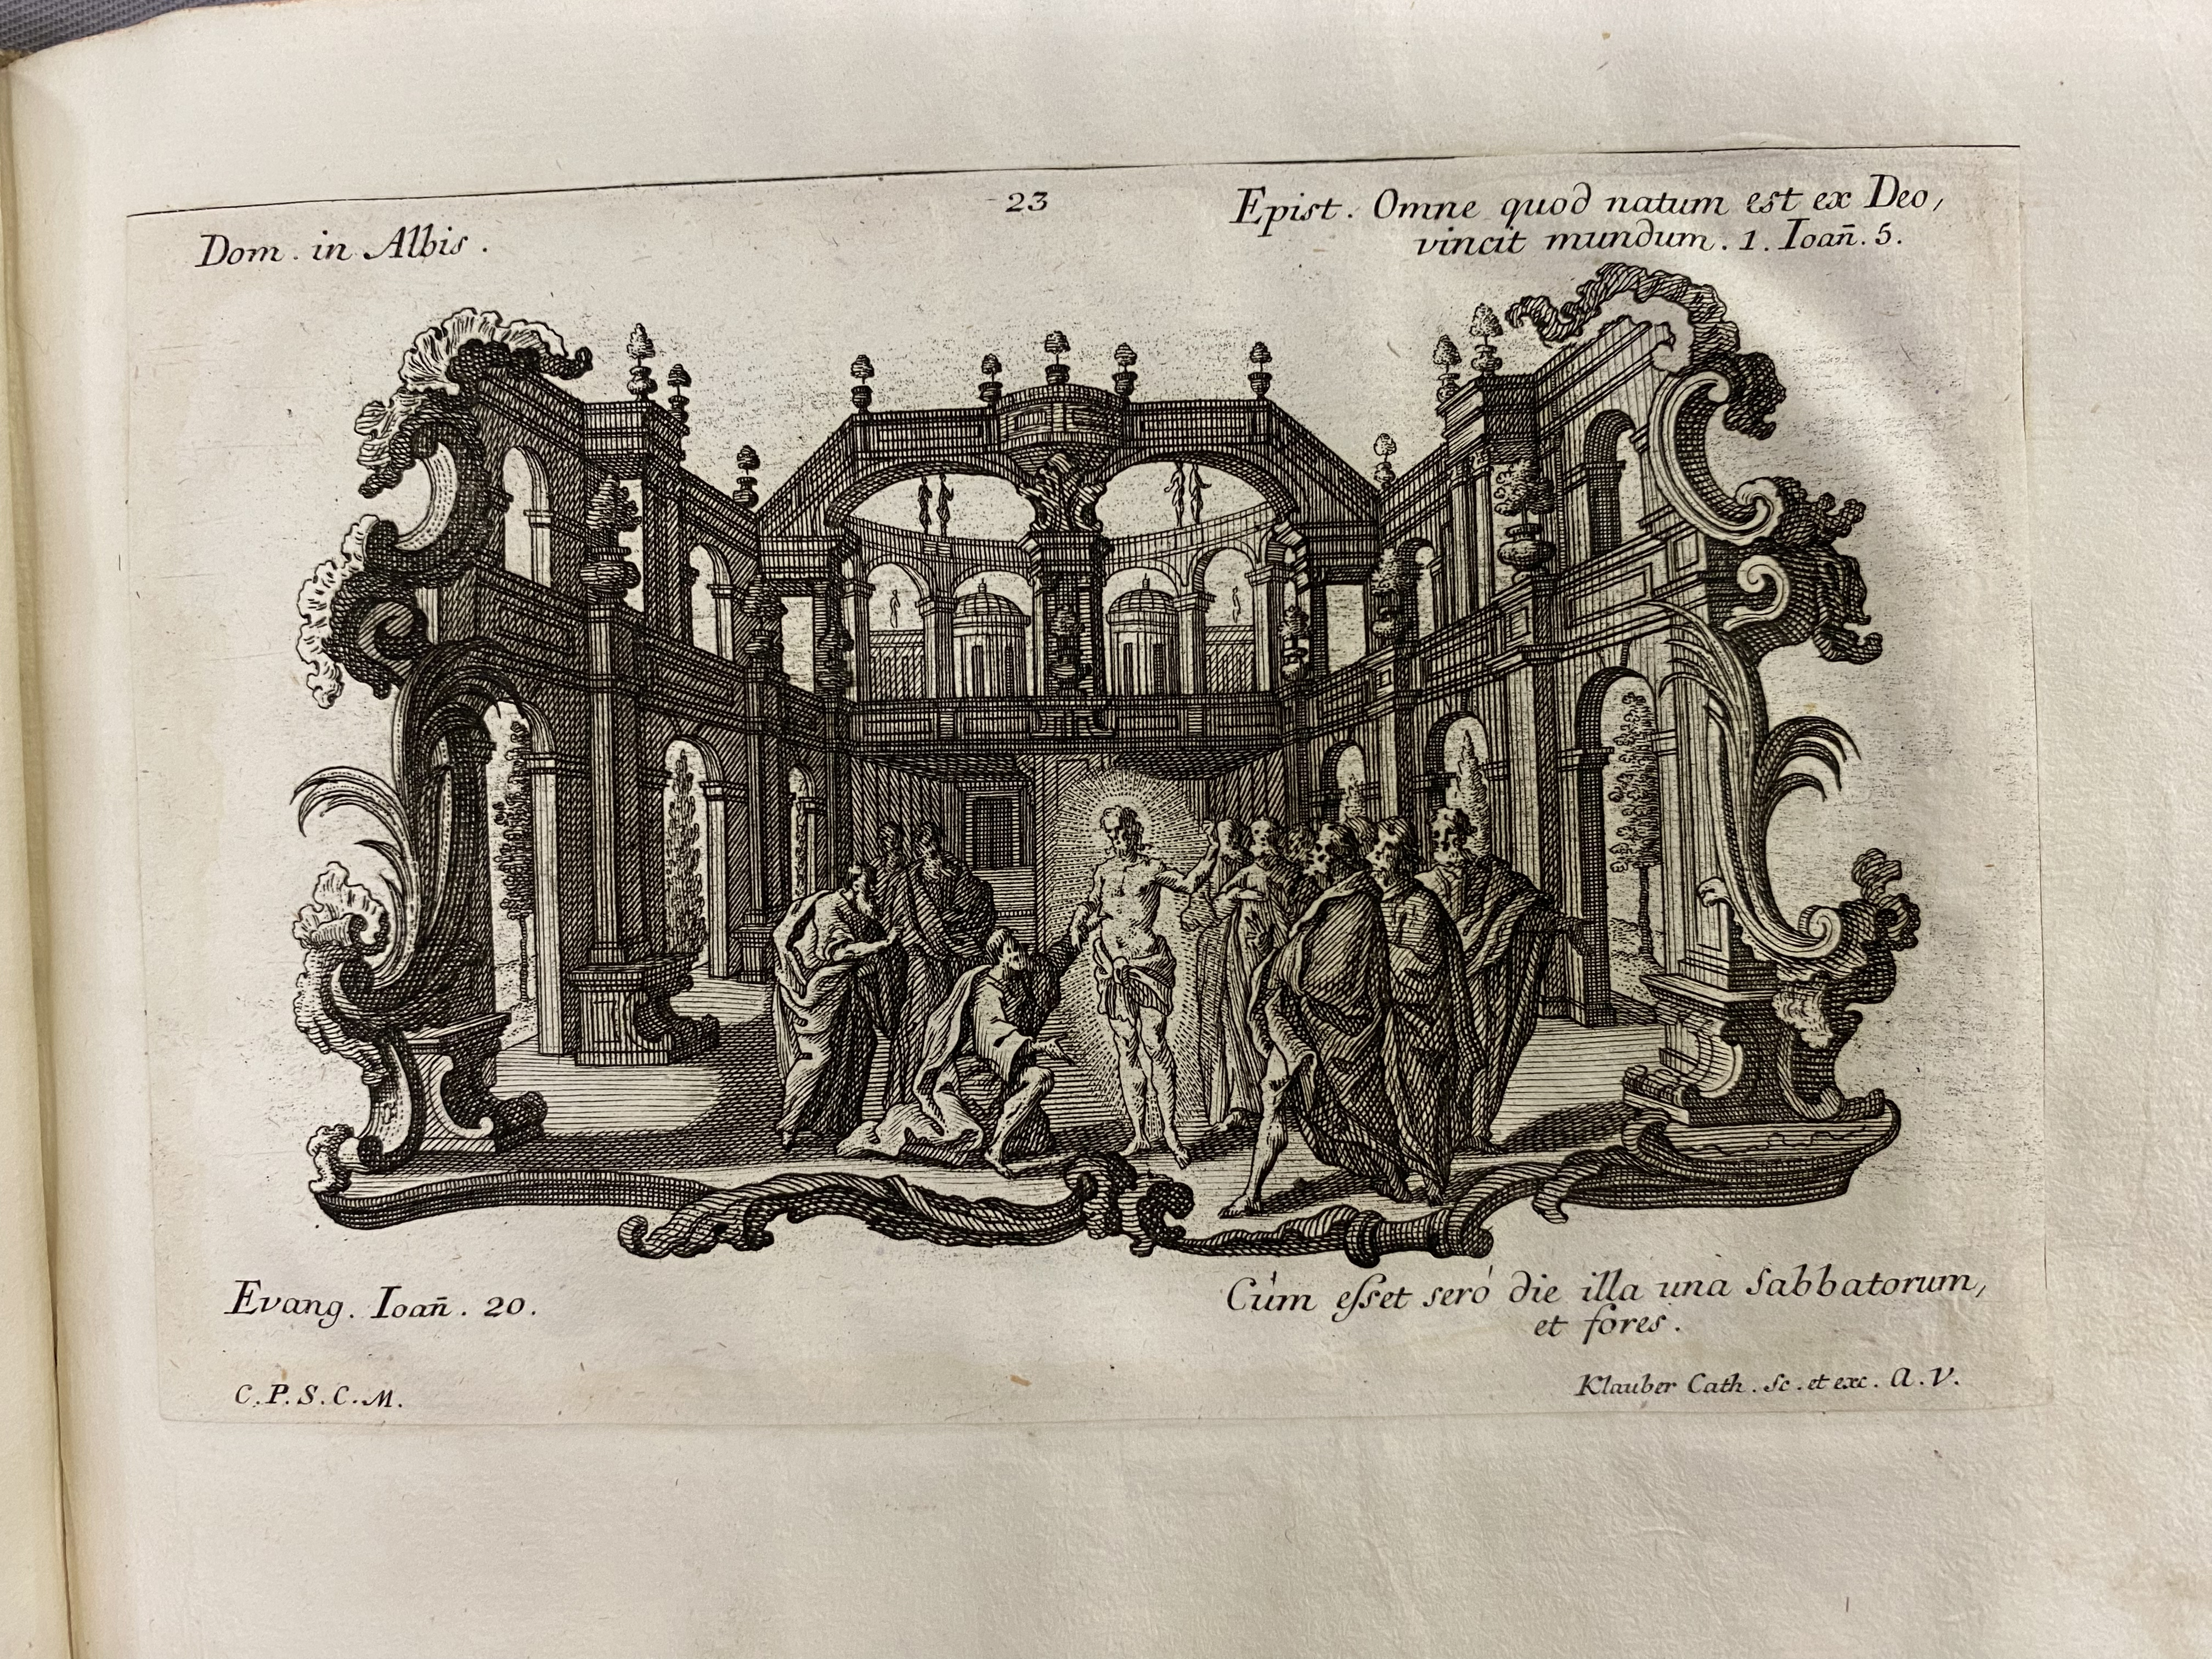 23
Dom. in Albis.
Epist. Omne quod natum est ex Deo,
vincit mundum. 1. Ioan̄. 5.
Evang. Ioan̄. 20.
Cùm eſset serò die illa una Sabbatorum,
et fores.
C.P.S.C.M.
Klauber Cath. Sc. et exc. A.V.